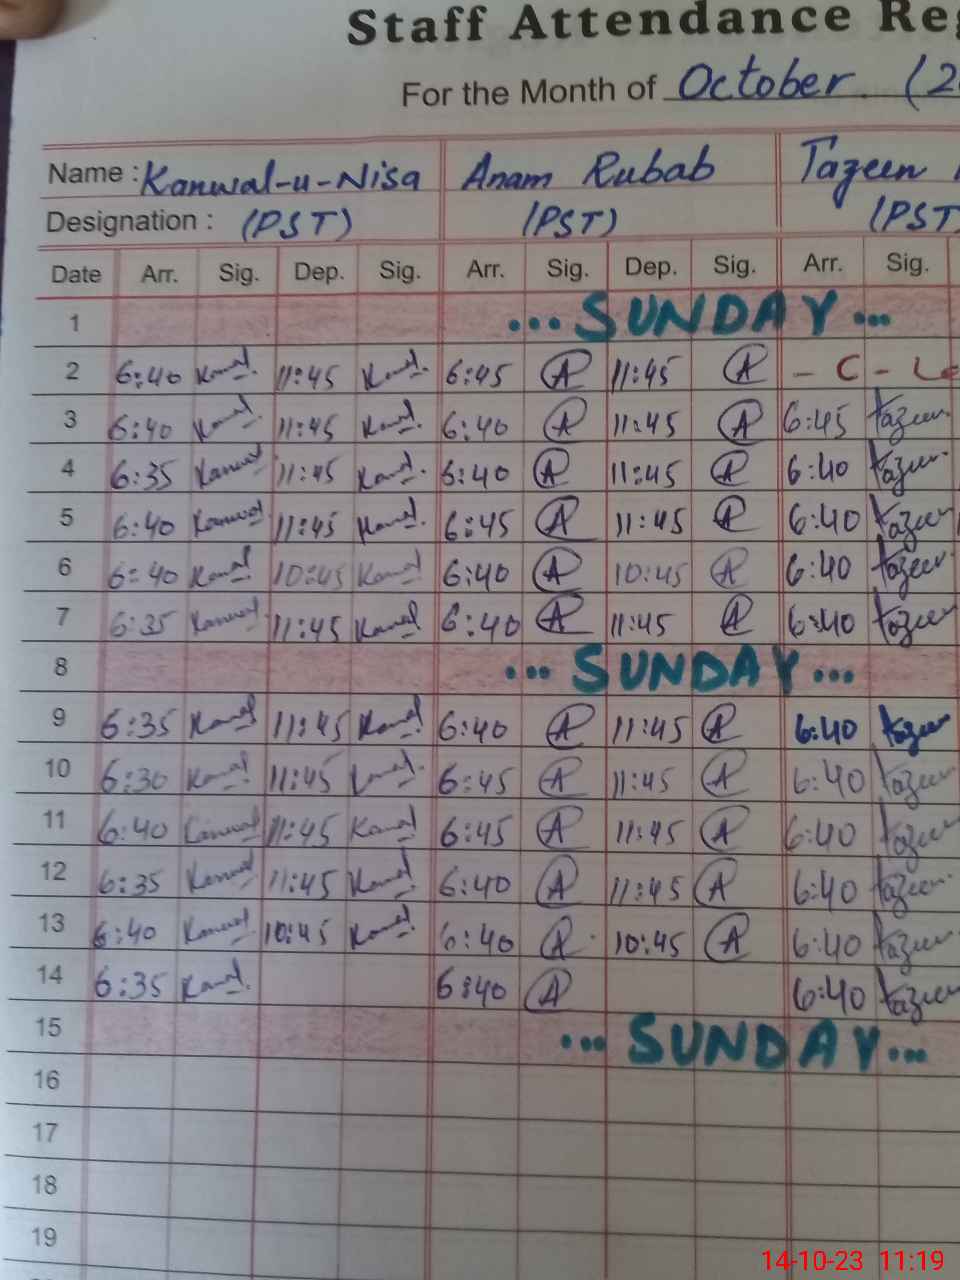 Staff Attendance
For the Month of October (2
Name : Kanwal-u-Nisa Anam Rubab Tazeen
Designation : (PST) (PST) (PST
Date Arr. Sig. Dep. Sig. Arr. Sig. Dep. Sig. Arr. Sig.
1 ...SUNDAY...
2 6:40 Kanwal. 11:45 Kanwal. 6:45 A 11:45 A - C - Le
3 6:40 Kanwal. 11:45 Kanwal. 6:40 A 11:45 A 6:45 Tazeen
4 6:35 Kanwal 11:45 Kanwal. 6:40 A 11:45 A 6:40 Tazeen
5 6:40 Kanwal 11:45 Kanwal. 6:45 A 11:45 A 6:40 Tazeen
6 6:40 Kanwal 10:45 Kanwal 6:40 A 10:45 A 6:40 Tazeen
7 6:35 Kanwal 11:45 Kanwal 6:40 A 11:45 A 6:40 Tazeen
8 ...SUNDAY...
9 6:35 Kanwal 11:45 Kanwal 6:40 A 11:45 A 6:40 Tazeen
10 6:30 Kanwal 11:45 Kanwal 6:45 A 11:45 A 6:40 Tazeen
11 6:40 Kanwal 11:45 Kanwal 6:45 A 11:45 A 6:40 Tazeen
12 6:35 Kanwal 11:45 Kanwal 6:40 A 11:45 A 6:40 Tazeen
13 6:40 Kanwal 10:45 Kanwal 6:40 A 10:45 A 6:40 Tazeen
14 6:35 Kanwal. 6:40 A 6:40 Tazeen
15 ...SUNDAY...
16
17
18
19
14-10-23 11:19